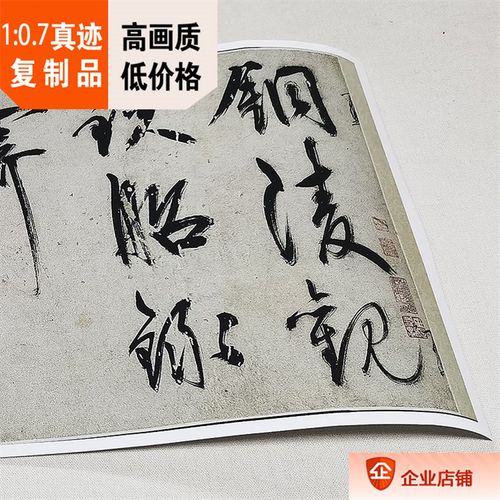 1:0.7真迹
复制品
高画质
低价格
銅陵觀
鐵船録
企
企业店铺